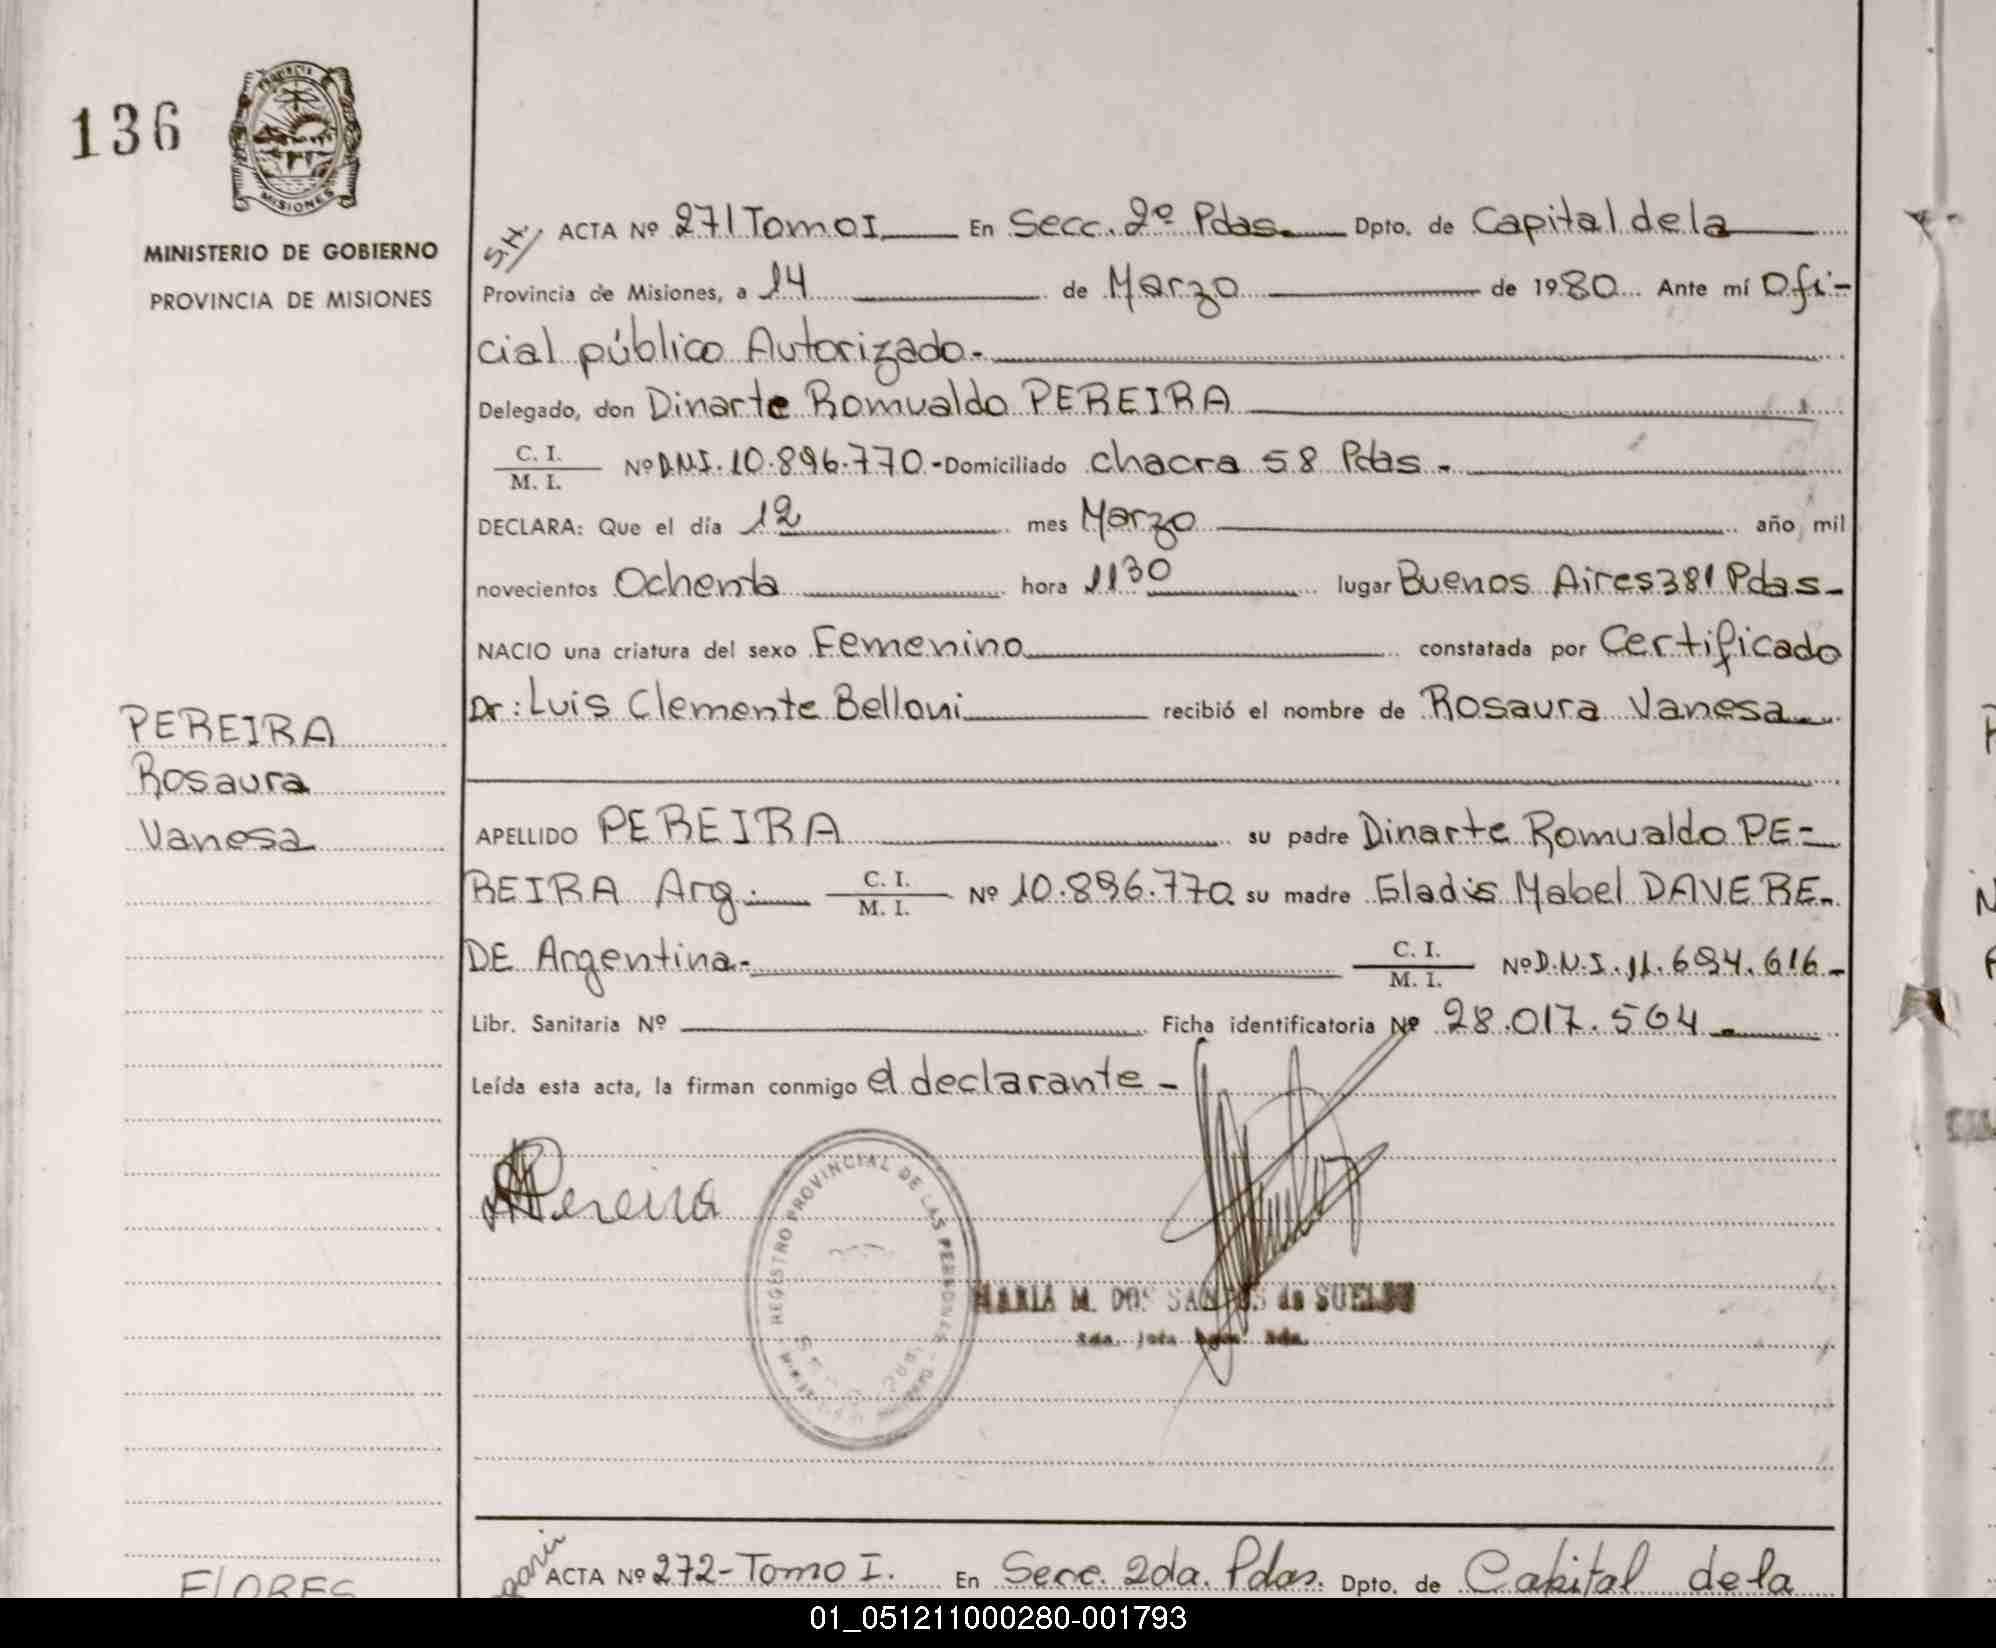 136
PROVINCIA
MISIONES
MINISTERIO DE GOBIERNO
PROVINCIA DE MISIONES
S.H. ACTA Nº 271 Tomo I En Secc. 2º Pdas. Dpto. de Capital de la
Provincia de Misiones, a 14 de Marzo de 1980 Ante mí Ofi-
cial público Autorizado.-
Delegado, don Dinarte Romualdo PEREIRA
C. I.
M. I. Nº D.N.I. 10.896.770.- Domiciliado chacra 58 Pdas -
DECLARA: Que el día 12 mes Marzo año mil
novecientos Ochenta hora 11 30 lugar Buenos Aires 381 Pdas-
NACIO una criatura del sexo Femenino constatada por Certificado
Dr: Luis Clemente Belloni recibió el nombre de Rosaura Vanesa
PEREIRA
Rosaura
Vanesa
APELLIDO PEREIRA su padre Dinarte Romualdo PE=
REIRA Arg. C. I. M. I. Nº 10.896.770 su madre Gladis Mabel DAVERE-
DE Argentina.- C. I. M. I. Nº D.N.I. 11.694.616-
Libr. Sanitaria Nº Ficha identificatoria Nº 28.017.504
Leída esta acta, la firman conmigo el declarante -
Pereira
REGISTRO PROVINCIAL DE LAS PERSONAS
MARIA M. DOS SANTOS de SUELDO
ACTA Nº 272- Tomo I. En Secc. 2da. Pdas. Dpto. de Capital de la
FLORES
01_051211000280-001793